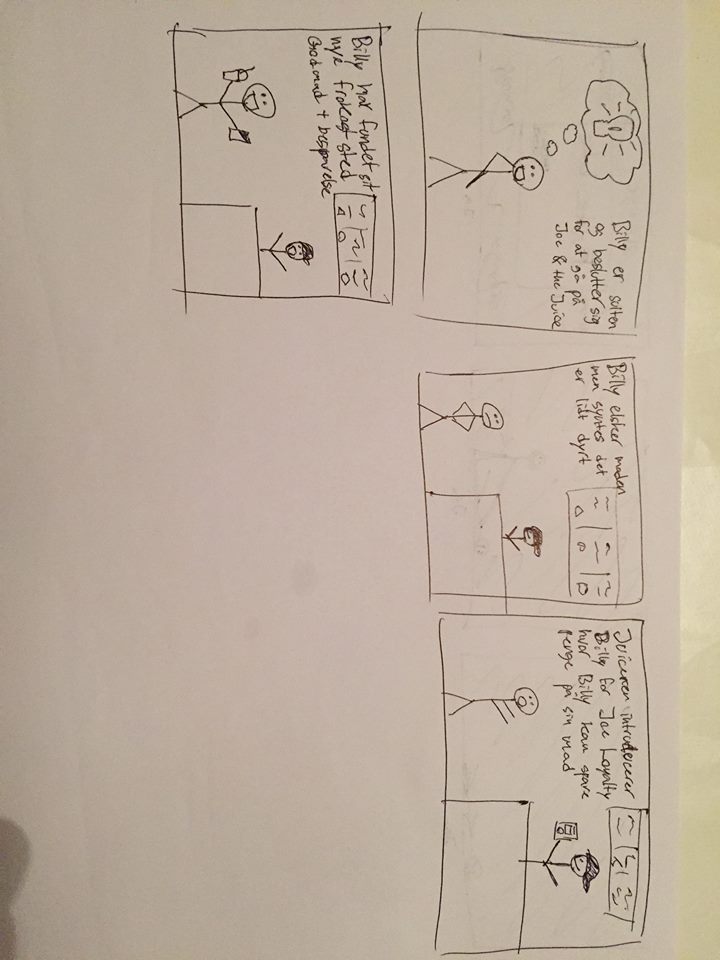 Billy er sulten
og beslutter sig
for at gå på
Joe & the Juice
Billy elsker maden
men syntes det
er lidt dyrt
Juiceren introducerer
Billy for Joe Loyalty
hvor Billy kan spare
penge på sin mad
Billy har fundet sit
nye frokost sted
God mad + besparelse